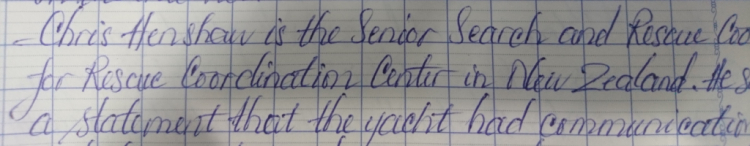 - Chris Henshaw is the Senior Search and Rescue Coo
for Rescue Coordination Center in New Zealand. He s
a statement that the yacht had communicatio